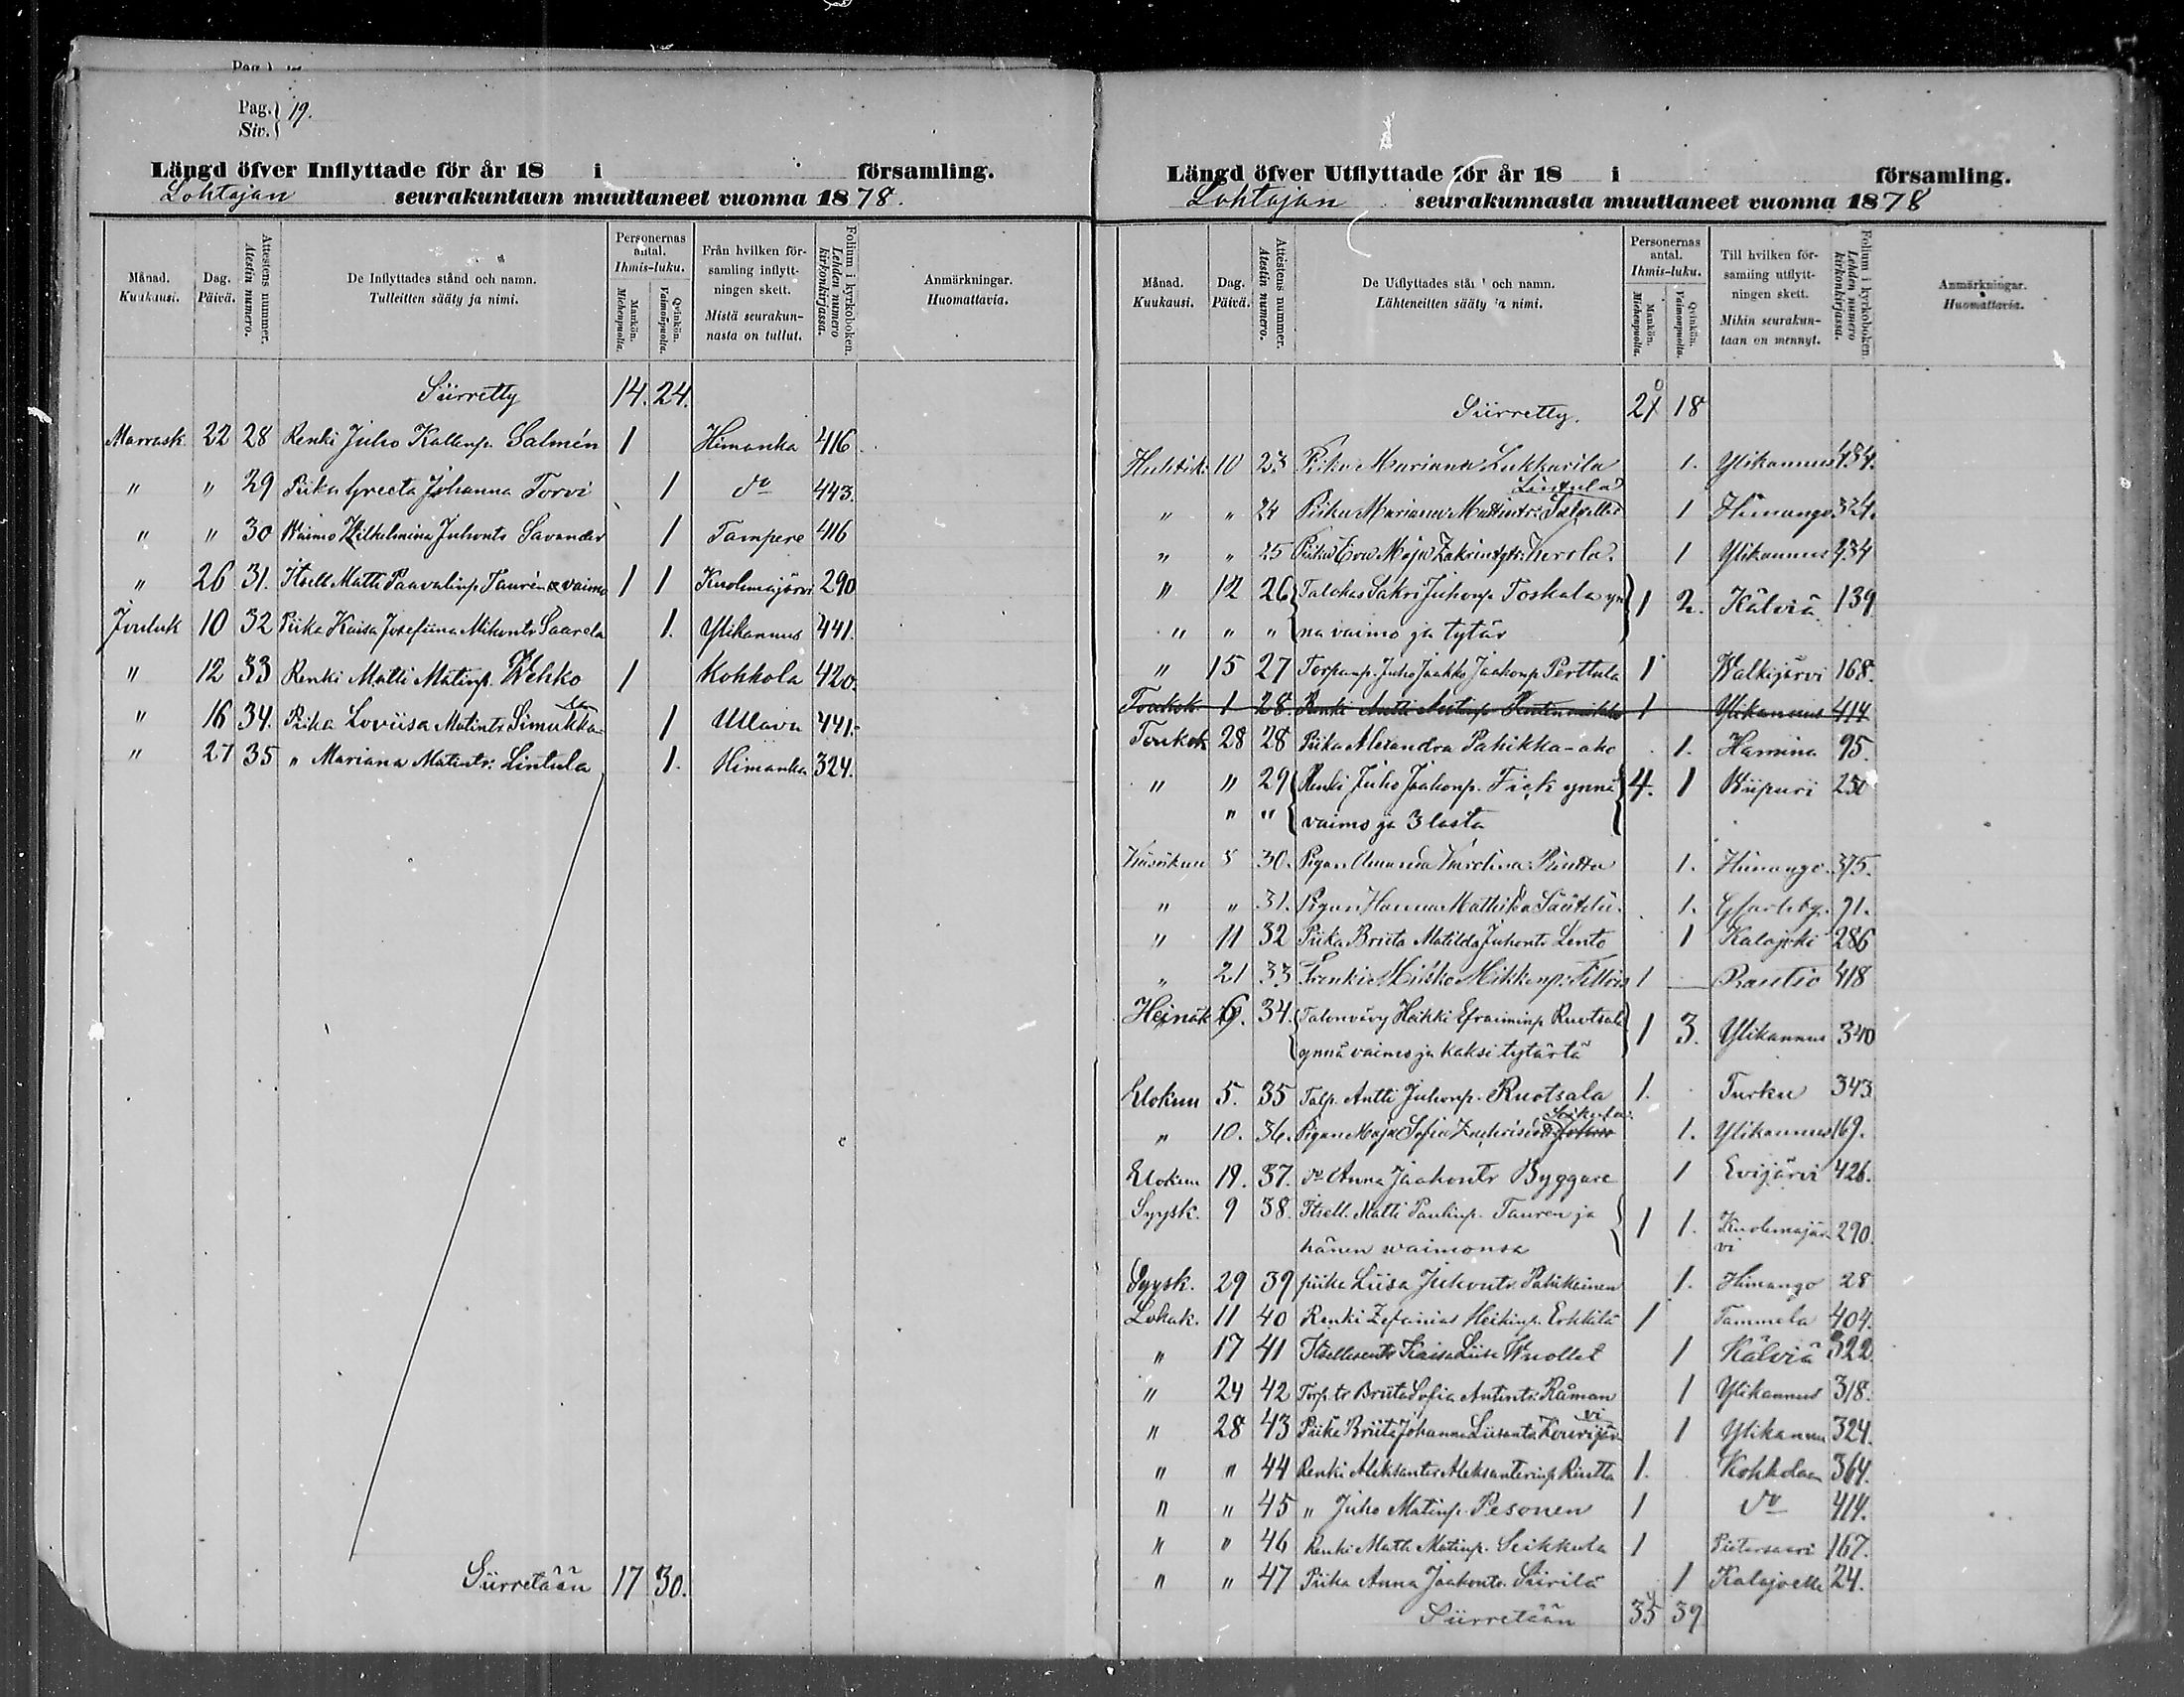 Pag. 19.
Siv.
Längd öfver Inflyttade för år 18 i församling.
Lohtajan seurakuntaan muuttaneet vuonna 1878.
Månad. Kuukausi.
Dag. Päivä.
Attestens nummer. Atestin numero.
De Inflyttades stånd och namn. Tulleitten sääty ja nimi.
Personernas antal. Ihmis-luku.
Mankön. Miehenpuolia.
Qvinkön. Vaimonpuolia.
Från hvilken församling inflyttningen skett. Mistä seurakunnasta on tullut.
Folium i kyrkoboken. Lehden numero kirkonkirjassa.
Anmärkningar. Huomattavia.
Siirretty 14. 24.
Marrask. 22 28 Renki Juho Kallenp. Salmén 1 Himanka 416
" " 29 Piika Greeta Johanna Torvi 1 do 443.
" " 30 Waimo Wilhelmina Juhontr Savander 1 Tampere 416
" 26 31. Itsell. Matti Paavalinp Taurén & vaimo 1 1 Kuolemajärvi 290
Jouluk 10 32 Piika Kaisa Josefiina Mikontr Saarela 1. Ylikannus 441.
" 12 33 Renki Matti Matinp. Wehko 1 Kokkola 420.
" 16 34. Piika Loviisa Matintr Simukka 1 Ullava 441.
" 27 35 " Mariana Matintr. Lintula 1. Himanka 324.
Siirretään 17 30.
Längd öfver Utflyttade för år 18 i församling.
Lohtajan seurakunnasta muuttaneet vuonna 1878
Månad. Kuukausi.
Dag. Päivä.
Attestens nummer. Atestin numero.
De Utflyttades stånd och namn. Lähteneitten sääty ja nimi.
Personernas antal. Ihmis-luku.
Mankön. Miehenpuolia.
Qvinkön. Vaimonpuolia.
Till hvilken församling utflyttningen skett. Mihin seurakuntaan on mennyt.
Folium i kyrkoboken. Lehden numero kirkonkirjassa.
Anmärkningar. Huomattavia.
Siirretty. 21 18
Huhtik. 10 23 Piika Mariana Lukkarila 1. Ylikannus 434.
Lintula
" " 24 Piika Mariana Mattintr. 1 Himango 324.
" " 25 Piika Eva Maja Zakrintytr. 1 Ylikannus 434
" 12 26 Talokas Sakri Juhonp Toskala yn 1 2. Kälviä 139
" " " na vaimo ja tytär
" 15 27 Torpanp. Juho Jaakko Jaakonp Perttula 1 Walkjärvi 168.
Toukok 1 28 Renki Antti Antinp 1 Ylikannus 414
Toukok 28 28 Piika Alexandra Pahikka-aho 1. Hamina 95.
" " 29 Renki Juho Jaakonp. Fick ynnä 4. 1 Wiipuri 250
" " vaimo ja 3 lasta
Kesäkuu 5 30. Pigan Amanda Karolina Rintta 1. Himango. 375.
" " 31. Pigan Hanna Mathilda 1. 91.
" 11 32 Piika Briita Matilda Juhontr Lento 1 Kalajoki 286
" 21 33 Renki Mikko Mikkonp: 1 Rautio 418
Heinäk 6. 34. Talonvävy Heikki Efraiminp Ruotsala 1 3. Ylikannus 340
ynnä vaimo ja kaksi tytärtä
Elokuu 5. 35 Talp. Antti Juhonp. Ruotsala 1. Turku 343
" 10. 36. Pigan Maja Sofia 1. Ylikannus 169.
Elokuu 19. 37. do Anna Jaakontr Byggare 1 Evijärvi 426.
Syysk. 9 38. Itsell. Matti Paulinp. Tauren ja 1 1. Kuolemajär- 290.
hänen waimonsa vi
Syysk. 29 39 piika Liisa Juhontr. Pahikkainen 1. Himango 28
Lokak. 11 40 Renki Zefanias Heikinp. Erkkilä 1 Tammela 404.
" 17 41 Itsellisentr Kaisa Liisa Wuollet 1 Kälviä 322.
" 24 42 Torp.tr Briita Sofia Antintr. Råman 1 Ylikannus 318.
" 28 43 Piika Briita Johanna Liisantr. Kouvijär 1 Ylikannus 324.
vi
" " 44 Renki Aleksanter Aleksanterinp Rintta 1. Kokkolaan 364.
" " 45 " Juho Matinp. Pesonen 1 do 414.
" " 46 Renki Matti Matinp. Seikkula 1 Pietarsaari 167.
" " 47 Piika Anna Jaakontr. Siirilä 1 Kalajoelle 24.
Siirretään 35 39